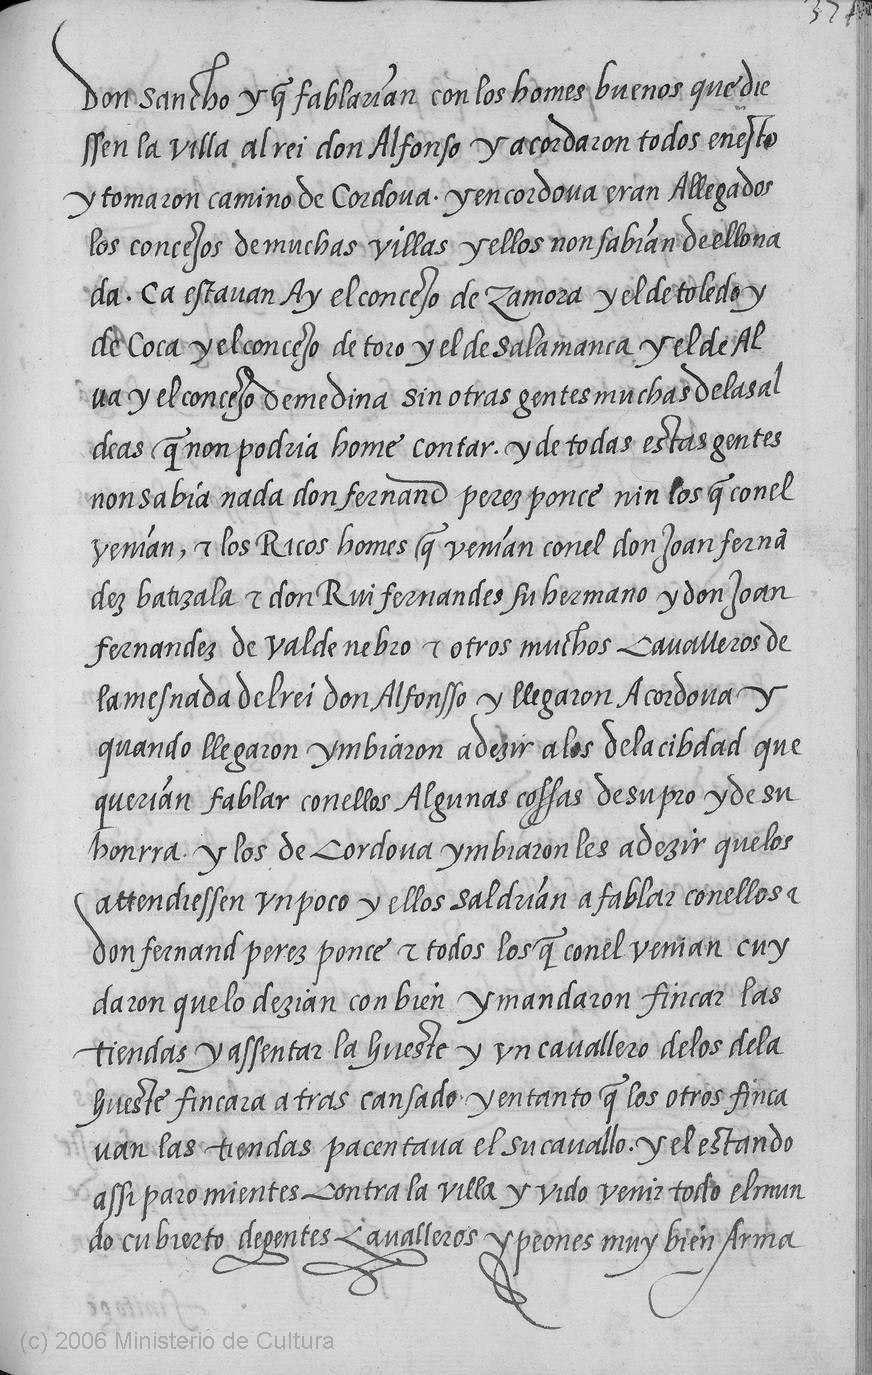 371
Don Sancho y q̃ fablarian con los homes buenos que die
ssen la villa al rei don Alfonso y acordaron todos enesto
y tomaron camino de Cordova. y en cordova eran Allegados
los concejos de muchas villas y ellos non sabian de ello na
da. Ca estavan Ay el concejo de Zamora y el de toledo y
de Coca y el concejo de toro y el de Salamanca y el de Al
va y el concejo de medina sin otras gentes muchas de las al
deas q̃ non podria home contar. y de todas estas gentes
non sabia nada don fernand perez ponce nin los q̃ con el
venian, τ los Ricos homes q̃ venian con el don Joan fernã
dez batizala τ don Rui fernandes su hermano y don Joan
fernandez de valdenebro τ otros muchos Cavalleros de
la mesnada del rei don Alfonsso y llegaron A cordova y
quando llegaron ymbiaron a dezir a los de la cibdad que
querian fablar conellos Algunas cossas de su pro y de su
honrra. y los de Cordova ymbiaron les a dezir que los
attendiessen vn poco y ellos saldrian a fablar conellos τ
don fernand perez ponce τ todos los q̃ con el venian cuy
daron que lo dezian con bien y mandaron fincar las
tiendas y assentar la hueste y vn cavallero de los de la
hueste fincara atras cansado y entanto q̃ los otros finca
van las tiendas pacentava el su cavallo. y el estando
assi paro mientes Contra la villa y vido venir todo el mun
do cubierto de gentes Cavalleros y peones muy bien Arma
(c) 2006 Ministerio de Cultura